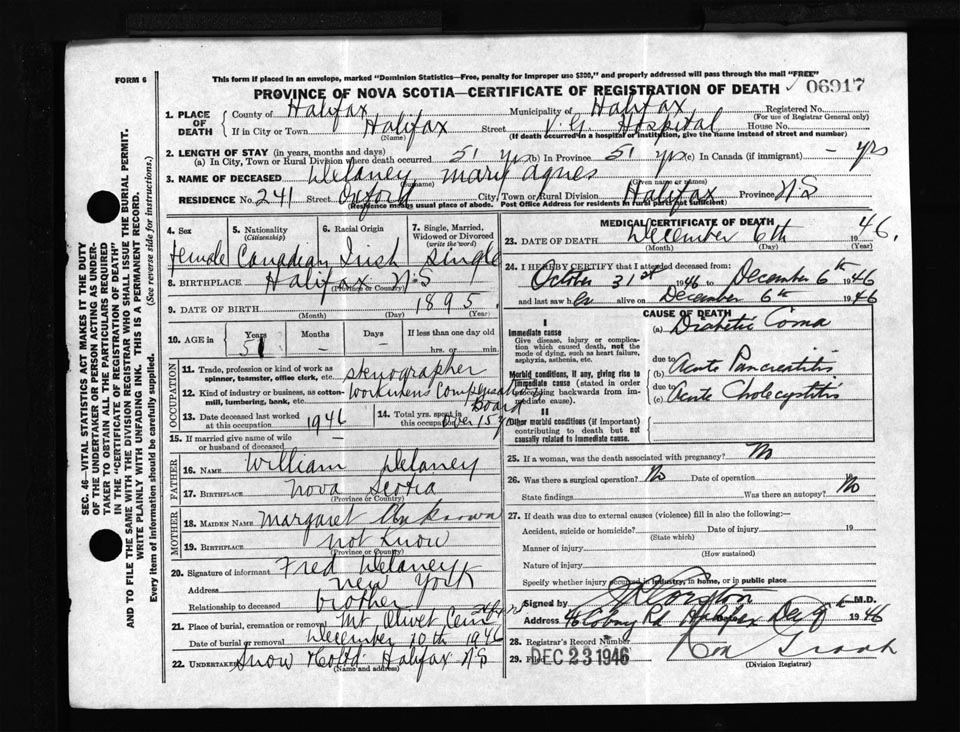 FORM 6
This form if placed in an envelope, marked "Dominion Statistics—Free, penalty for improper use $300," and properly addressed will pass through the mail "FREE"
PROVINCE OF NOVA SCOTIA—CERTIFICATE OF REGISTRATION OF DEATH
06917
1. PLACE OF DEATH County of Halifax Municipality of Halifax Registered No. (For use of Registrar General only)
If in City or Town Halifax (Name) Street V.G. Hospital House No.
(If death occurred in a hospital or institution, give the name instead of street and number)
2. LENGTH OF STAY (in years, months and days)
(a) In City, Town or Rural Division where death occurred 51 yrs (b) In Province 51 yrs (c) In Canada (if immigrant) - yrs
3. NAME OF DECEASED Delaney Mary Agnes
(Surname) (Given name or names)
RESIDENCE No. 241 Street Oxford City, Town or Rural Division Halifax Province N.S
(Residence means usual place of abode. Post Office Address for residents in rural parts not sufficient)
4. Sex female
5. Nationality (Citizenship) Canadian
6. Racial Origin Irish
7. Single, Married, Widowed or Divorced (write the word) Single
8. BIRTHPLACE Halifax N.S
(Province or Country)
9. DATE OF BIRTH 1895
(Month) (Day) (Year)
10. AGE in Years 51 Months — Days — If less than one day old
hrs. or min.
OCCUPATION
11. Trade, profession or kind of work as spinner, teamster, office clerk, etc. Stenographer
12. Kind of industry or business, as cotton-mill, lumbering, bank, etc. Workmens Compensation Board
13. Date deceased last worked at this occupation 1946
14. Total yrs. spent in this occupation Over 15 y
15. If married give name of wife or husband of deceased —
FATHER
16. NAME William Delaney
17. BIRTHPLACE Nova Scotia
(Province or Country)
MOTHER
18. MAIDEN NAME Margaret Unknown
19. BIRTHPLACE not Know
(Province or Country)
20. Signature of informant Fred Delaney
Address New York
Relationship to deceased brother
21. Place of burial, cremation or removal Mt Olivet Cem
Date of burial or removal December 10th 1946
22. UNDERTAKER Snow Halifax N.S
(Name and address)
MEDICAL CERTIFICATE OF DEATH
23. DATE OF DEATH December 6th 1946.
(Month) (Day) (Year)
24. I HEREBY CERTIFY that I attended deceased from:
October 31st 1946 to December 6th 1946
and last saw her alive on December 6th 1946
CAUSE OF DEATH
I
Immediate cause
Give disease, injury or complication which caused death, not the mode of dying, such as heart failure, asphyxia, asthenia, etc.
(a) Diabetic Coma
due to
Morbid conditions, if any, giving rise to immediate cause (stated in order proceeding backwards from immediate cause).
(b) Acute Pancreatitis
due to
(c) Acute Cholecystitis
II
Other morbid conditions (if important) contributing to death but not causally related to immediate cause.
25. If a woman, was the death associated with pregnancy? No
26. Was there a surgical operation? No Date of operation 19
State findings Was there an autopsy? No
27. If death was due to external causes (violence) fill in also the following:—
Accident, suicide or homicide? Date of injury 19
(State which)
Manner of injury
(How sustained)
Nature of injury
Specify whether injury occurred in industry, in home, or in public place
Signed by M.D.
Halifax Dec 9th 1946
28. Registrar's Record Number
29. Filed DEC 23 1946
(Division Registrar)
SEC. 46—VITAL STATISTICS ACT MAKES IT THE DUTY
OF THE UNDERTAKER OR PERSON ACTING AS UNDER-
TAKER TO OBTAIN ALL THE PARTICULARS REQUIRED
IN THE "CERTIFICATE OF REGISTRATION OF DEATH"
AND TO FILE THE SAME WITH THE DIVISION REGISTRAR WHO SHALL ISSUE THE BURIAL PERMIT.
WRITE PLAINLY WITH UNFADING INK. THIS IS A PERMANENT RECORD.
Every item of information should be carefully supplied. (See reverse side for instructions.)